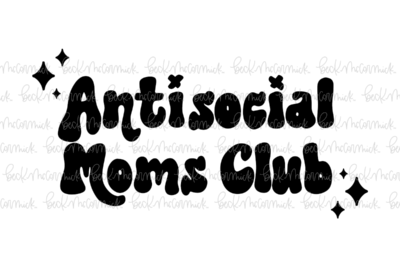 Antisocial
Moms Club